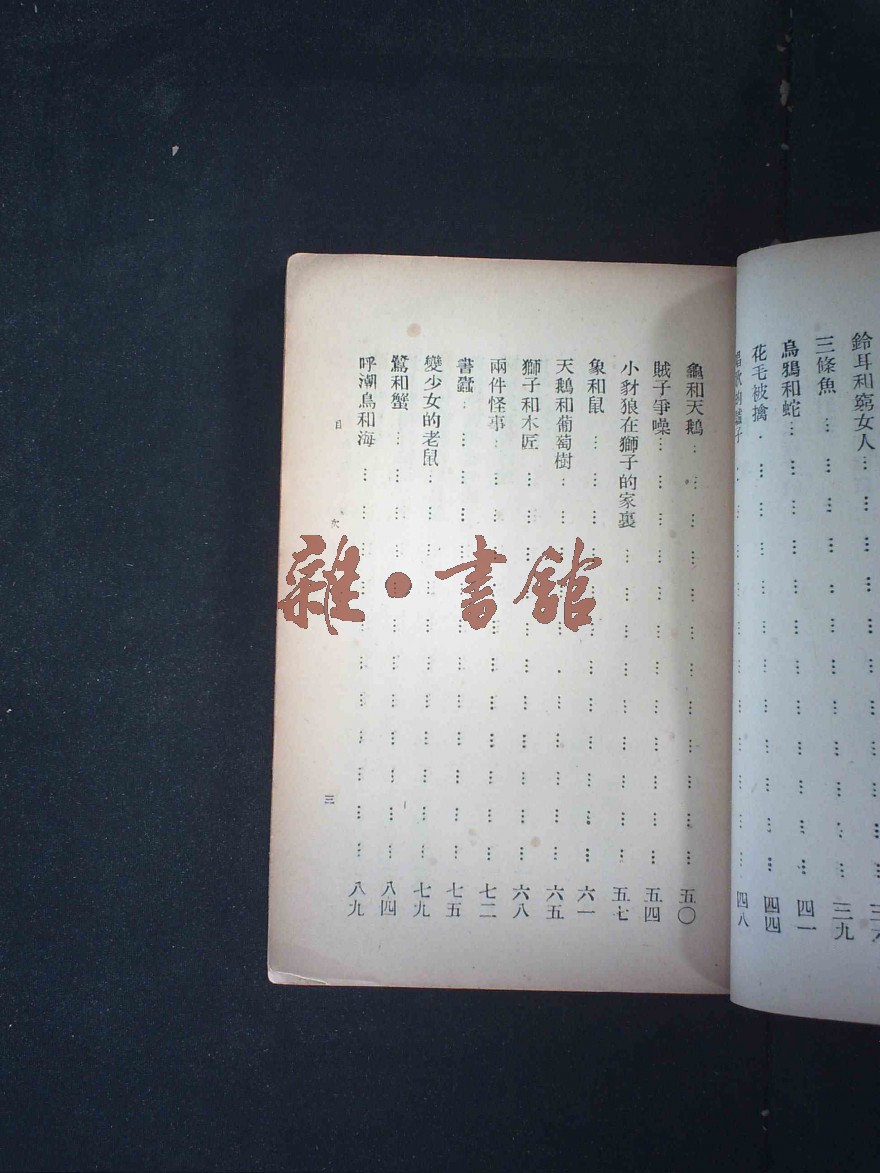 鈴耳和窮女人…………………………三
三條魚…………………………三九
烏鴉和蛇…………………………四一
花毛被擒…………………………四四
唱歌的驢子…………………………四八
龜和天鵝…………………………五〇
賊子爭噪…………………………五四
小豺狼在獅子的家裏…………………………五七
象和鼠…………………………六一
天鵝和葡萄樹…………………………六五
獅子和木匠…………………………六八
兩件怪事…………………………七二
書蠹…………………………七五
變少女的老鼠…………………………七九
鷺和蟹…………………………八四
呼潮鳥和海…………………………八九
目次
三
雜·書館